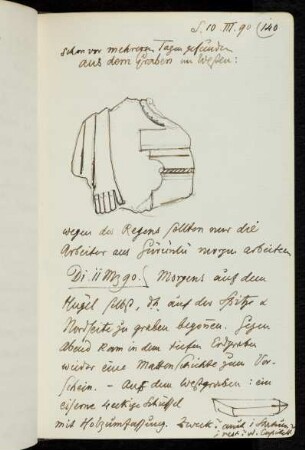 S. 10 III. 90 (140
schon vor mehreren Tagen gefunden
aus dem Graben im Westen:
wegen des Regens sollten nur die
Arbeiter aus morgen arbeiten
Di. 11 Mz 90. Morgens auf dem
Hügel selbst, d.h. auf der Spitze &
Nordseite zu graben begonnen. Gegen
Abend kam in dem tiefen Erdgraben
wieder eine Mattenschichte zum Vor-
schein. – Aus dem Westgraben: ein
eiserne 4eckige Schüssel
mit Holzumfassung. Zweck?